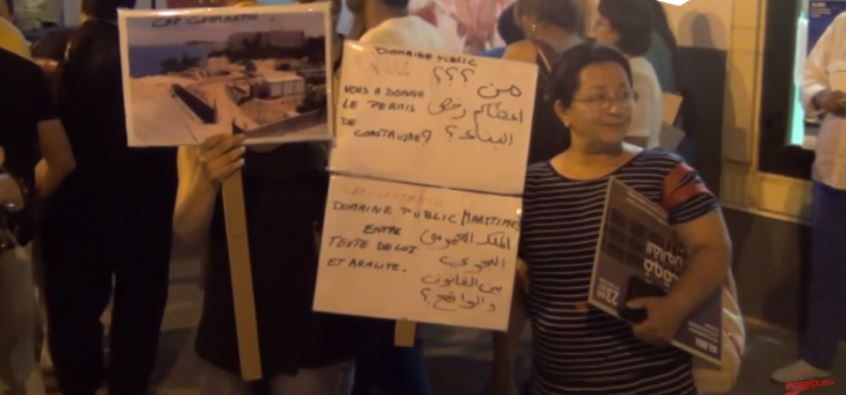 CAP GAMMARTH
DOMAINE PUBLIC
QUI ???
VOUS A DONNE
LE PERMIS
DE
CONSTRUIRE?
من
اعطاكم رخص
البناء؟
DOMAINE PUBLIC MARITIME
ENTRE
TEXTE DE LOI
ET REALITE.
الملك العمومي
البحري
بين القانون
والواقع؟
23